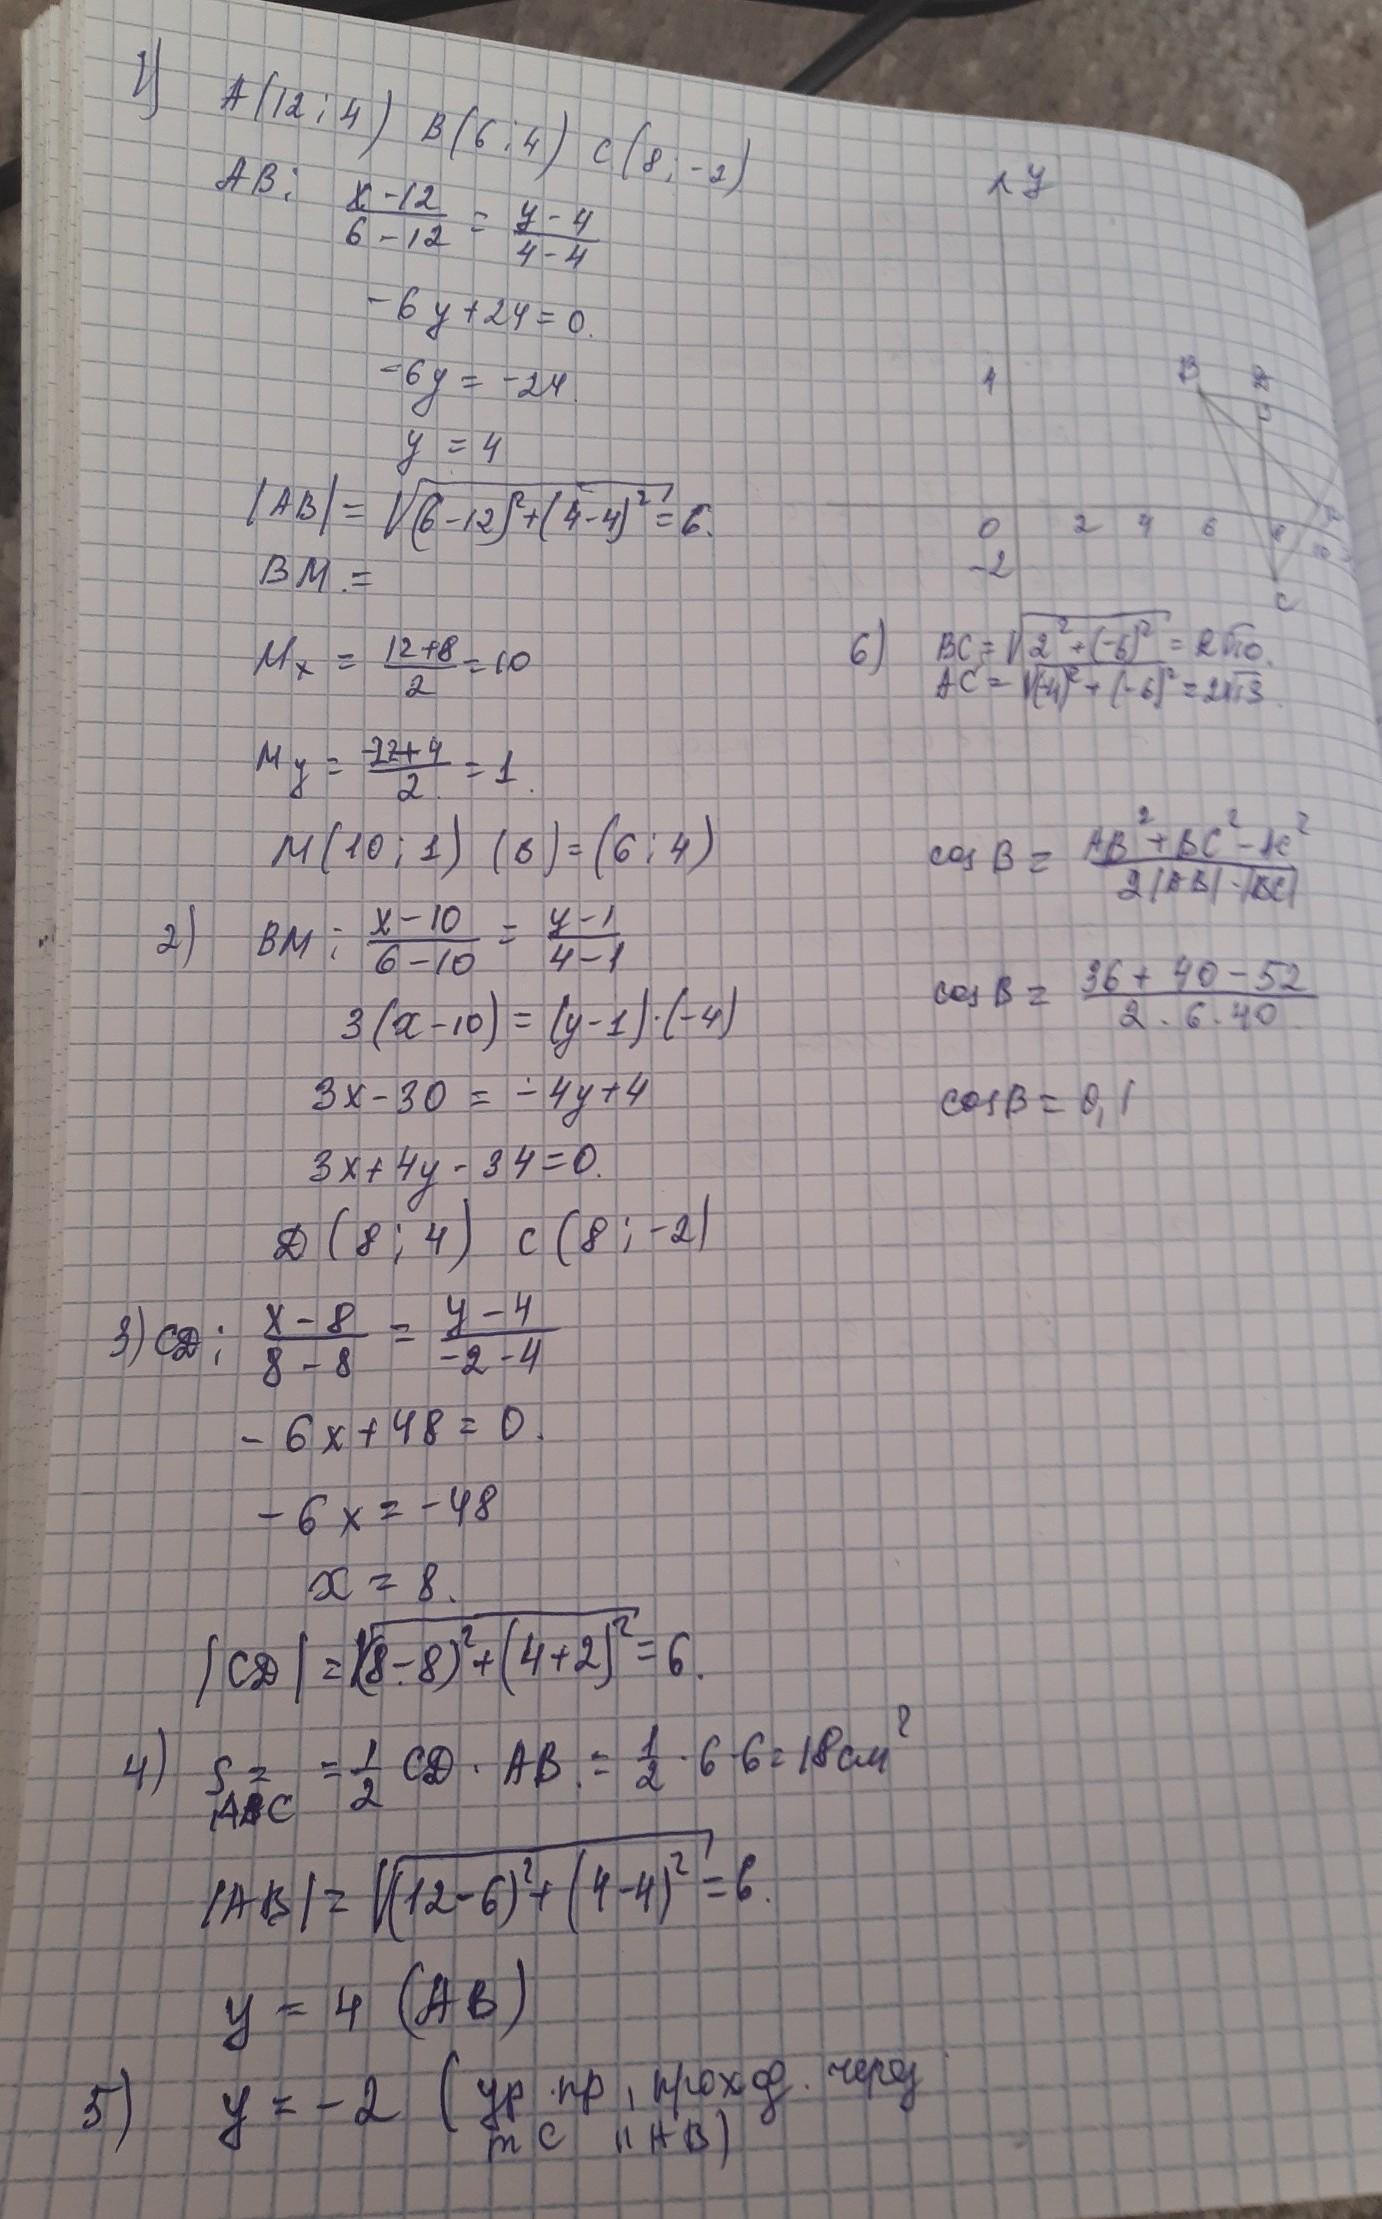 1) A(12;4) B(6;4) C(8;-2)
AB: (x-12)/(6-12) = (y-4)/(4-4)
-6y+24=0.
-6y=-24
y=4
|AB|=√((6-12)²+(4-4)²)=6.
BM.=
Mx = (12+8)/2 = 10
My = (-2+4)/2 = 1.
M(10;1) (B)=(6;4)
2) BM: (x-10)/(6-10) = (y-1)/(4-1)
3(x-10)=(y-1)·(-4)
3x-30=-4y+4
3x+4y-34=0.
D(8;4) C(8;-2)
3) CD: (x-8)/(8-8) = (y-4)/(-2-4)
-6x+48=0.
-6x=-48
x=8.
|CD|=√((8-8)²+(4+2)²)=6.
4) S= ABC =1/2 CD·AB.=1/2·6·6=18см²
|AB|=√((12-6)²+(4-4)²)=6.
y=4 (AB)
5) y=-2 (ур.пр, проход. через
т C || AB)
y
4 B D
0 2 4 6 8 10
-2
C
6) BC=√(2²+(-6)²)=2√10.
AC=√((-4)²+(-6)²)=2√13.
cos B = (AB²+BC²-AC²)/(2|AB|·|BC|)
cos B = (36+40-52)/(2·6·40)
cos B = 0,1